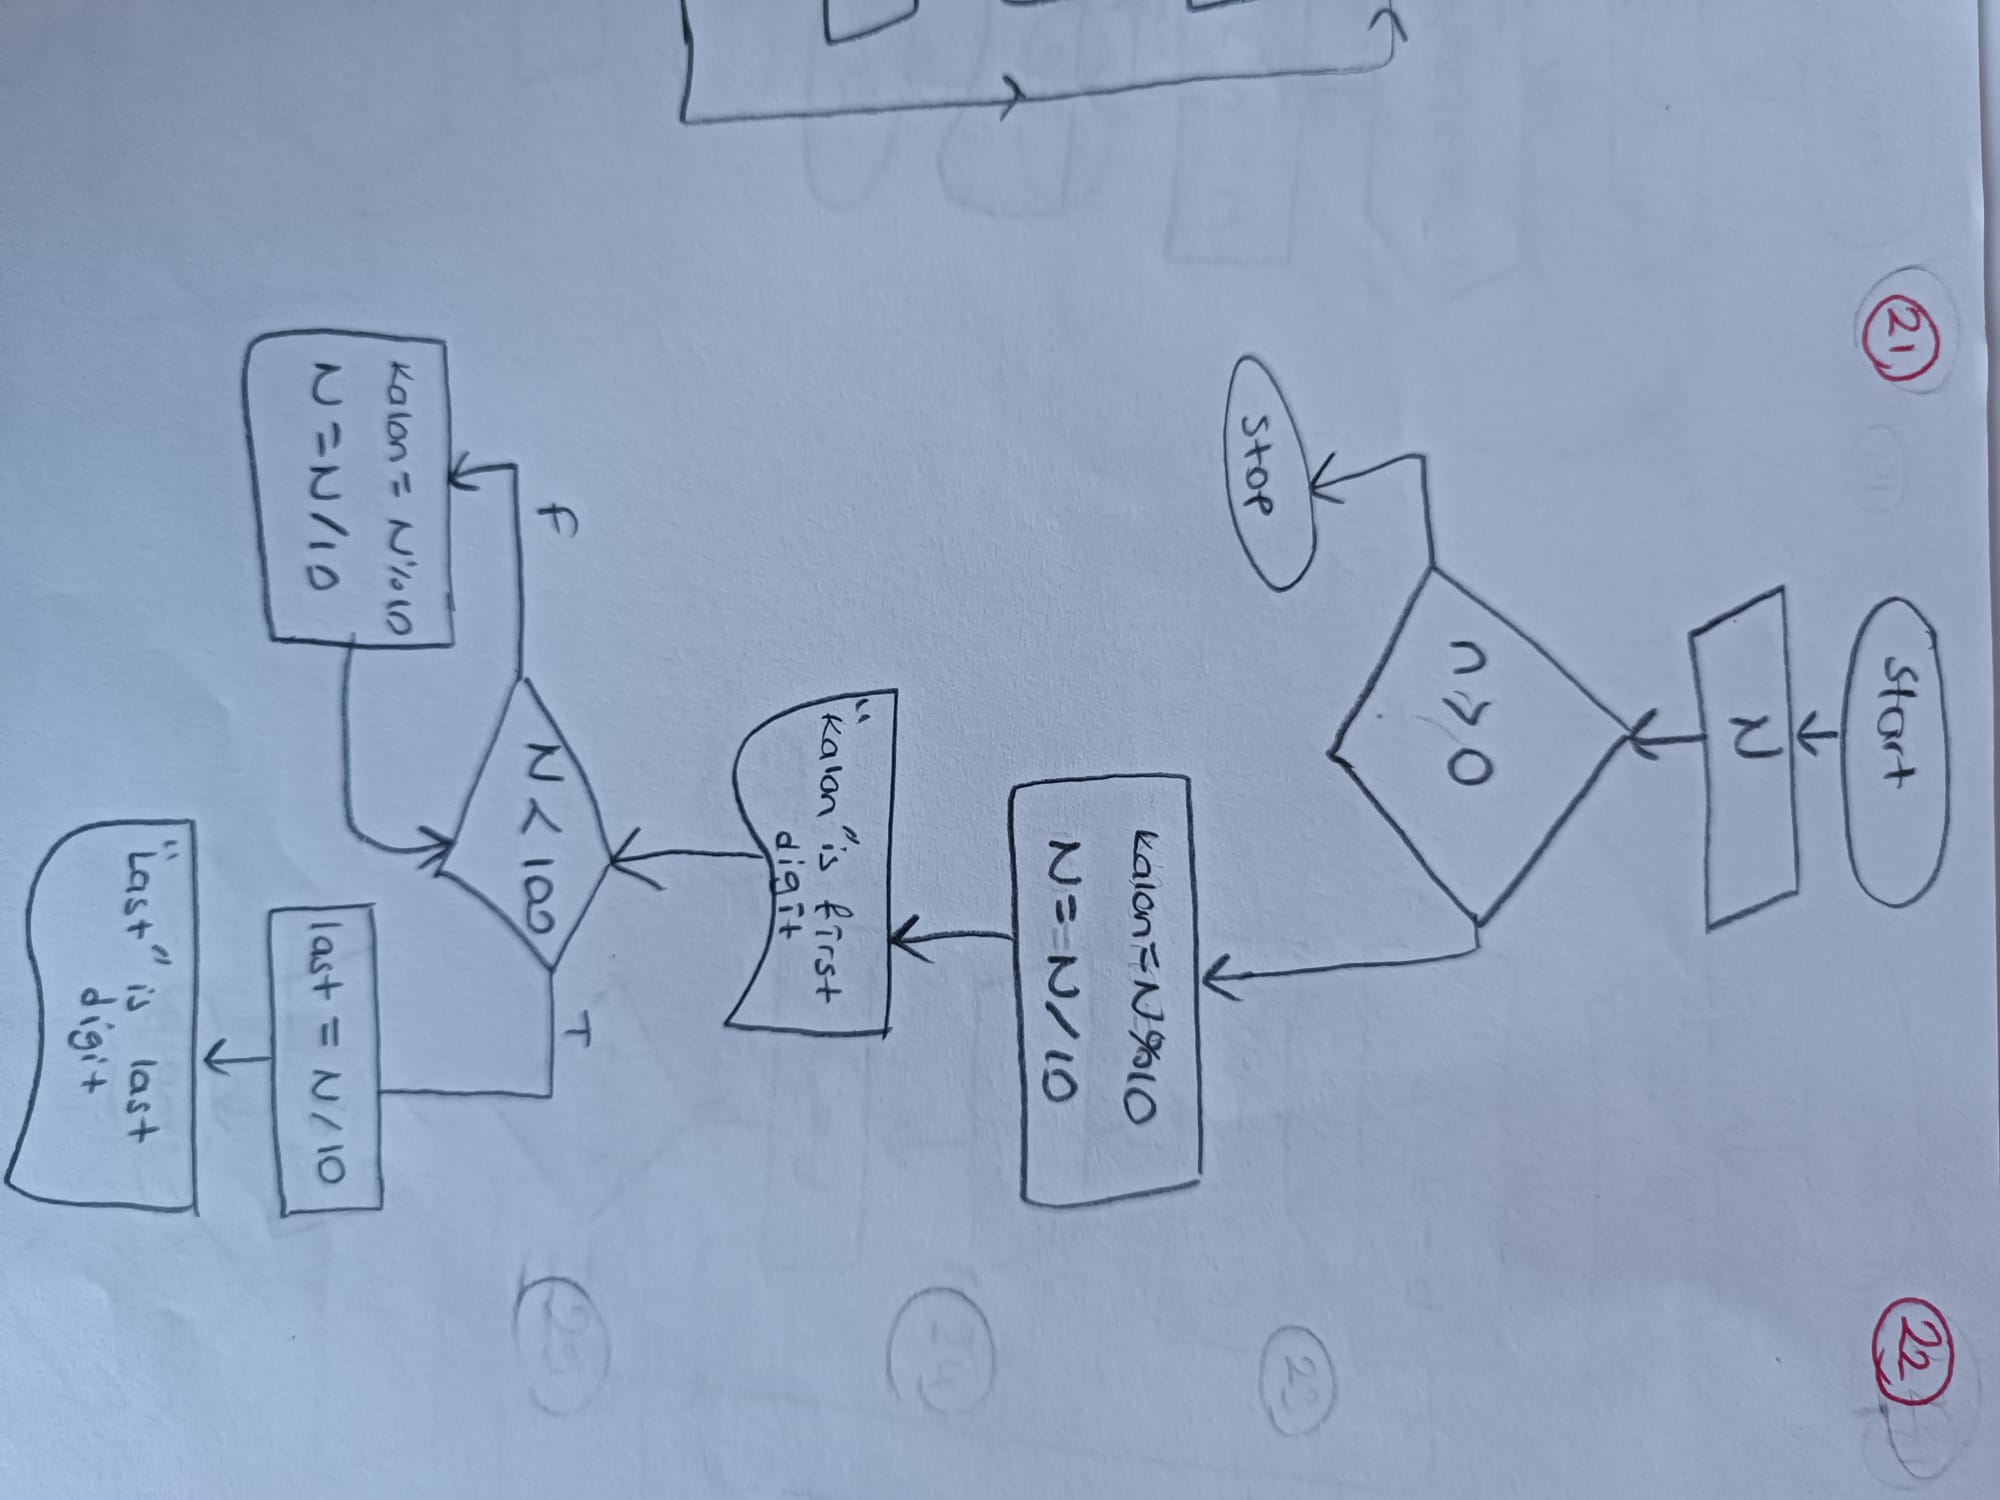 21
22
Start
N
n>0
Stop
Kalan=N%10
N==N/10
"Kalan" is first
digit
N<100
F
T
Kalan=N%10
N=N/10
last=N/10
"Last" is last
digit
23
24
25